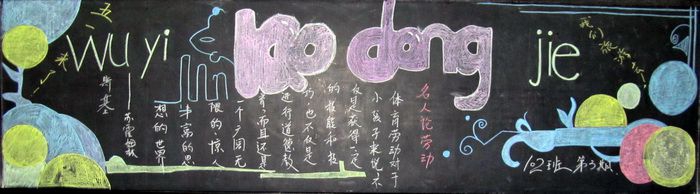 五一来
wu yi lao dong jie
我们
名人论劳动
体育劳动对于
小孩子来说不
仅是获得一定
的技能和技
巧，也不仅是
进行道德教
育，而且还是
一个广阔无
限的惊人
丰富的思
想的世界
——苏霍姆林
斯基
102班 第3期